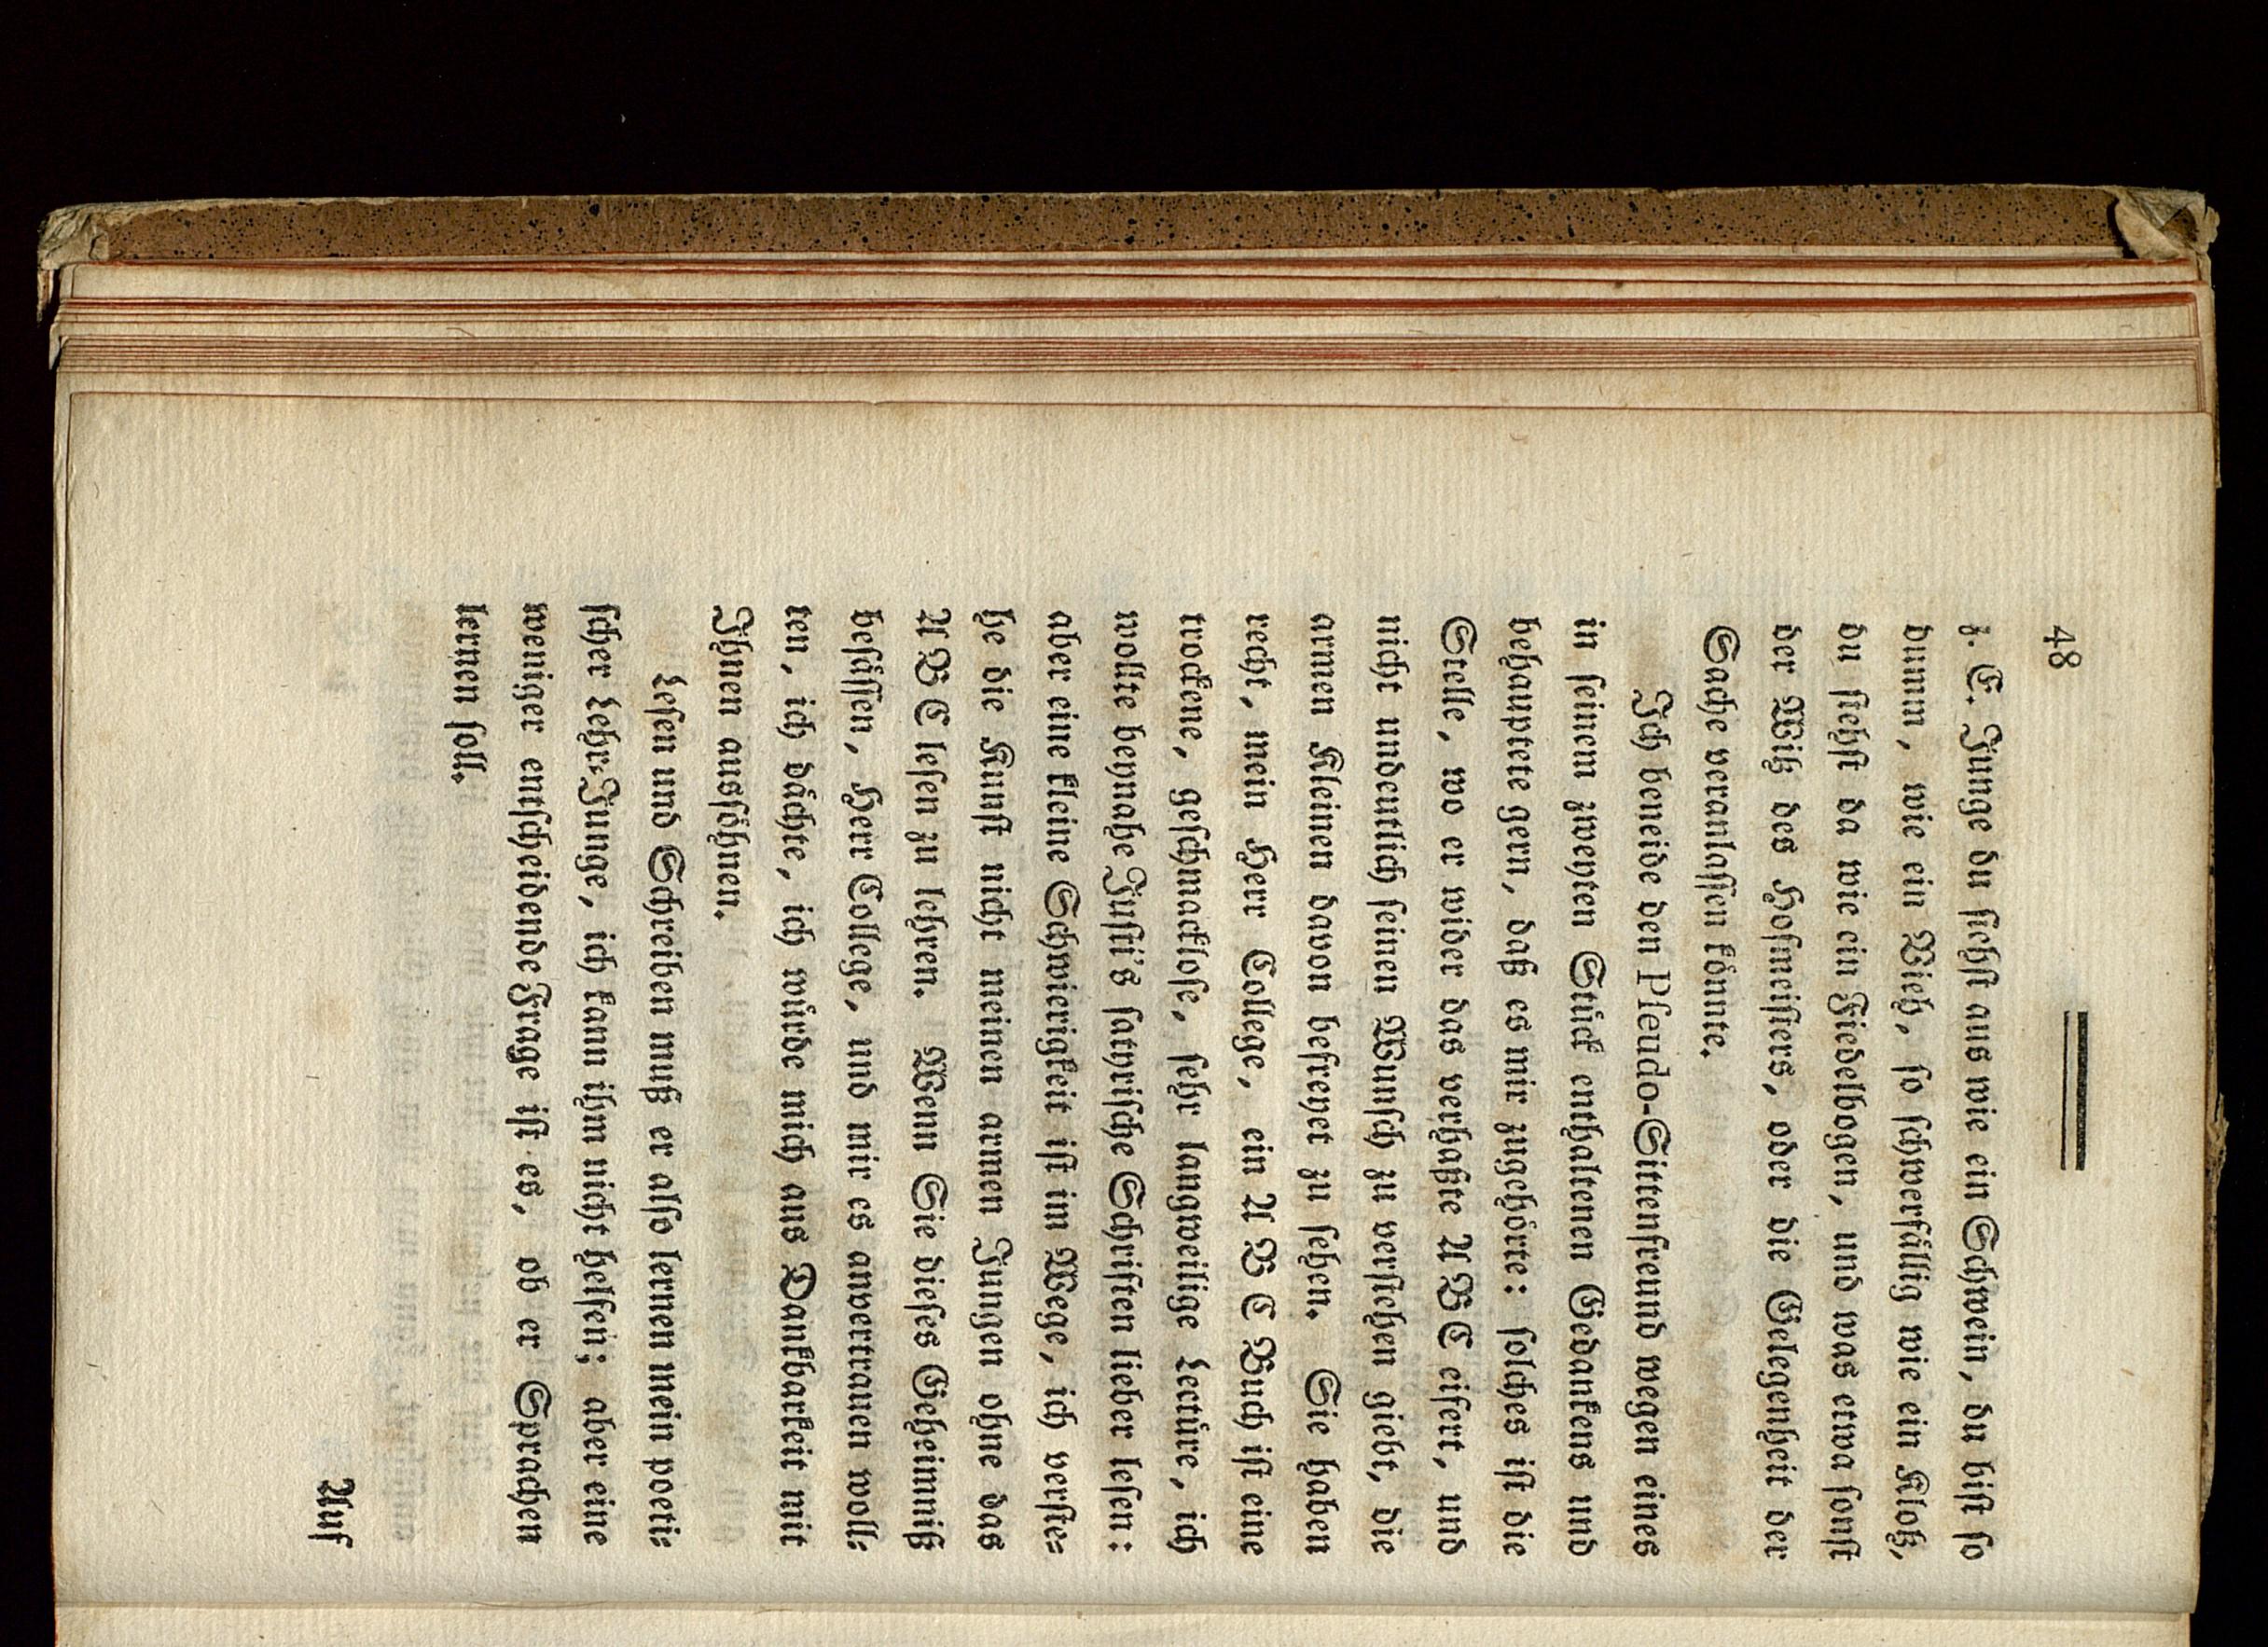 48
z. E. Junge du ſiehſt aus wie ein Schwein, du biſt ſo
dumm, wie ein Vieh, ſo ſchwerfällig wie ein Klotz,
du ſtehſt da wie ein Fiedelbogen, und was etwa ſonſt
der Witz des Hofmeiſters, oder die Gelegenheit der
Sache veranlaſſen könnte.
Ich beneide den Pſeudo-Sittenfreund wegen eines
in ſeinem zweyten Stück enthaltenen Gedankens und
behauptete gern, daß es mir zugehörte: ſolches iſt die
Stelle, wo er wider das verhaßte A B C eifert, und
nicht undeutlich ſeinen Wunſch zu verſtehen giebt, die
armen Kleinen davon befreyet zu ſehen. Sie haben
recht, mein Herr College, ein A B C Buch iſt eine
trockene, geſchmackloſe, ſehr langweilige Lecture, ich
wollte beynahe Juſtii's ſatyriſche Schriften lieber leſen:
aber eine kleine Schwierigkeit iſt im Wege, ich verſte⸗
he die Kunſt nicht meinen armen Jungen ohne das
A B C leſen zu lehren. Wenn Sie dieſes Geheimniß
beſäſſen, Herr College, und mir es anvertrauen woll⸗
ten, ich dächte, ich würde mich aus Dankbarkeit mit
Ihnen ausſöhnen.
Leſen und Schreiben muß er alſo lernen mein poeti⸗
ſcher Lehr⸗Junge, ich kann ihm nicht helfen; aber eine
weniger entſcheidende Frage iſt es, ob er Sprachen
lernen ſoll.
Auf